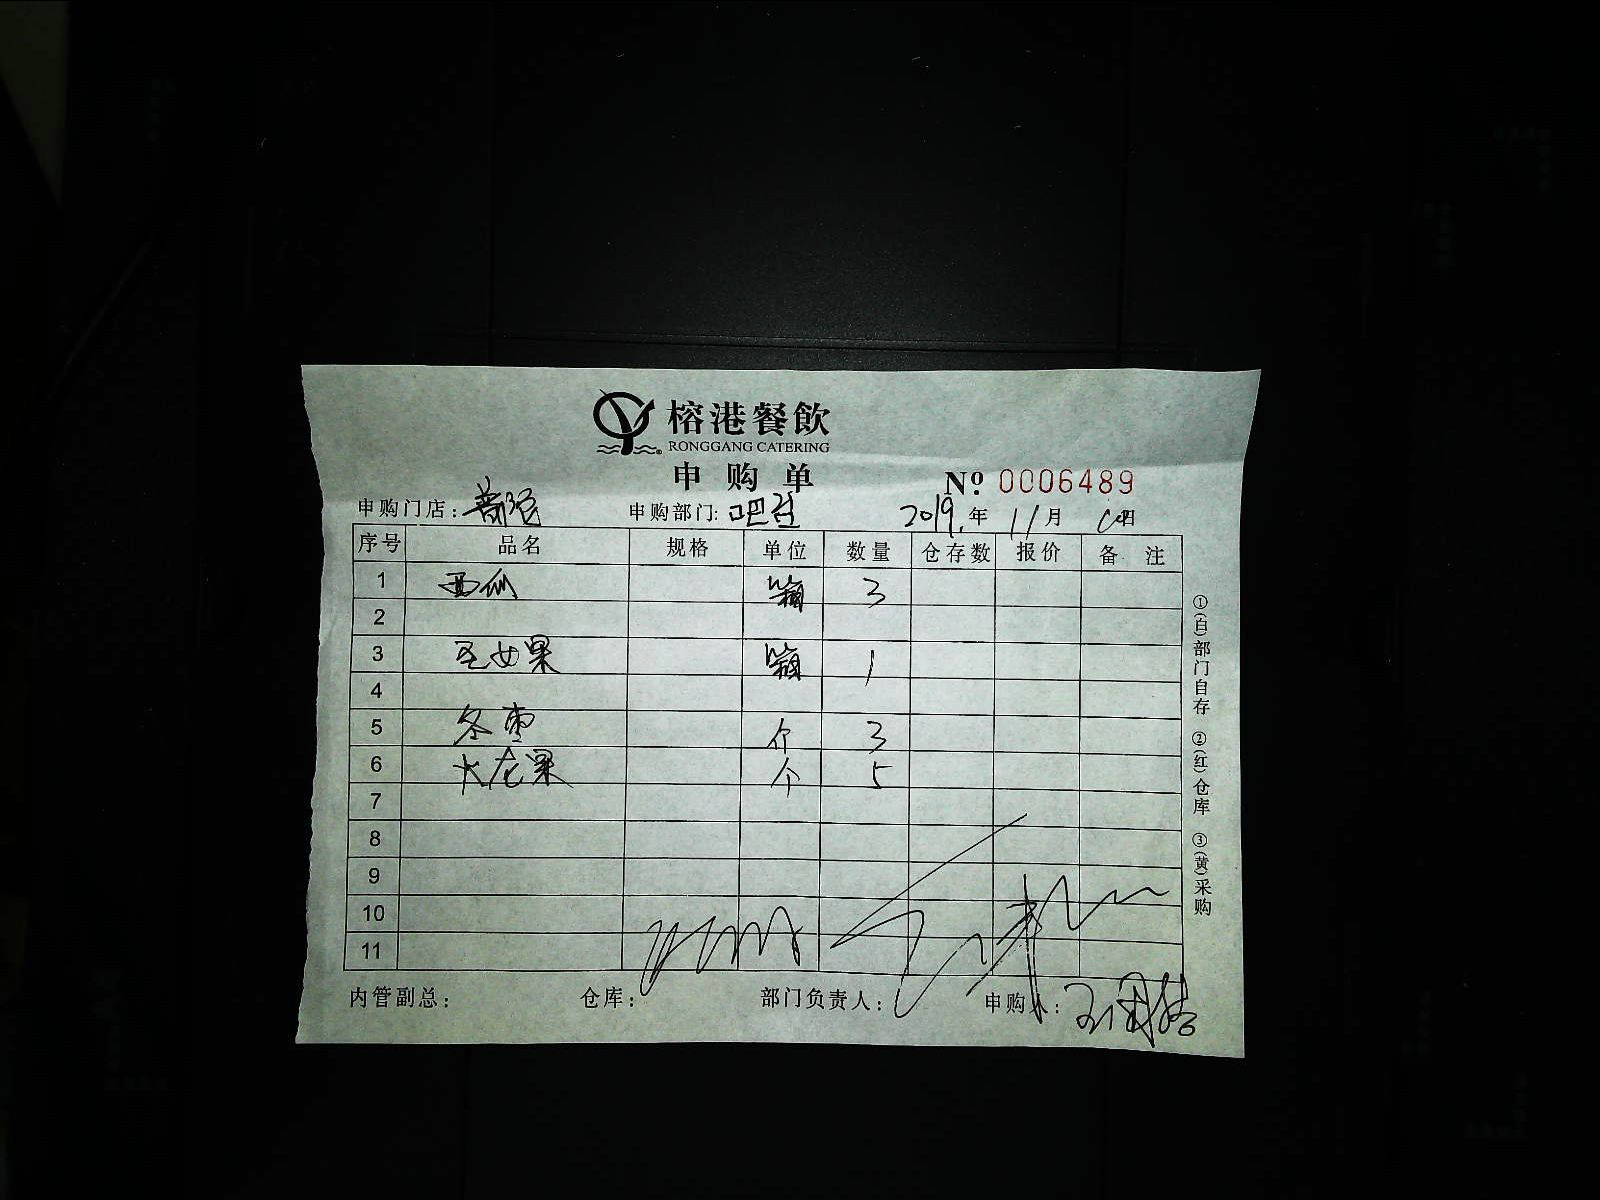 榕港餐飲
RONGGANG CATERING
申购单
№: 0006489
申购门店: 申购部门: 吧台 2019年 11月 日
序号 品名 规格 单位 数量 仓存数 报价 备注
1 箱 3
2
3 圣女果 箱 1
4
5 冬枣 个 3
6 火龙果 个 5
7
8
9
10
11
内管副总: 仓库: 部门负责人: 申购人:
①(白)部门自存 ②(红)仓库 ③(黄)采购